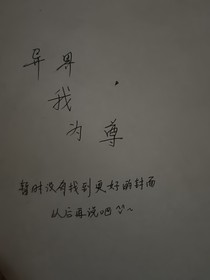 异界
我
为尊
暂时没有找到更好的封面
以后再说吧^^~